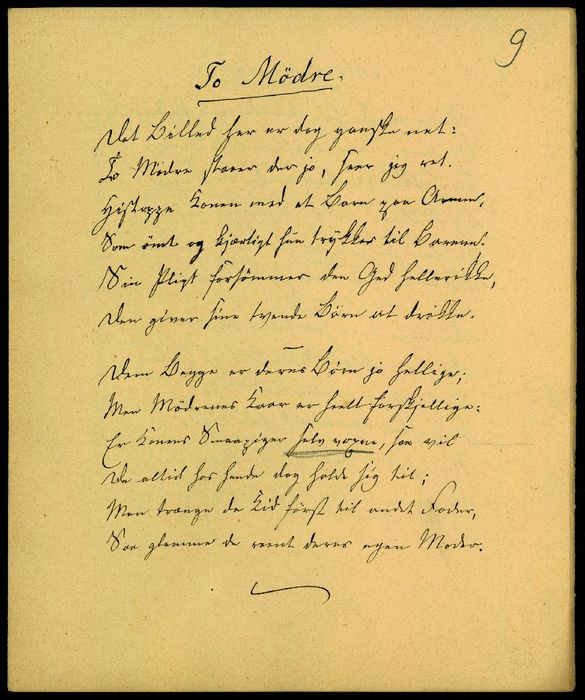 9
To Mödre.
Det Billed her er dog ganske net:
To Mödre staaer der jo, seer jeg ret.
Histoppe Konen med et Barn paa Armen,
Som ömt og kjærligt hun trykker til Barmen.
Sin Pligt forsömmer den Ged hellerikke,
Den giver sine tvende Börn at drikke.
Dem Begge er deres Börn jo hellige;
Men Mödrenes Kaar er heelt forskjellige:
Er Konens Smaapiger selv voxne, saa vil
De altid hos hende dog holde sig til;
Men trænge de Kid först til andet Foder,
Saa glemme de reent deres egen Moder.